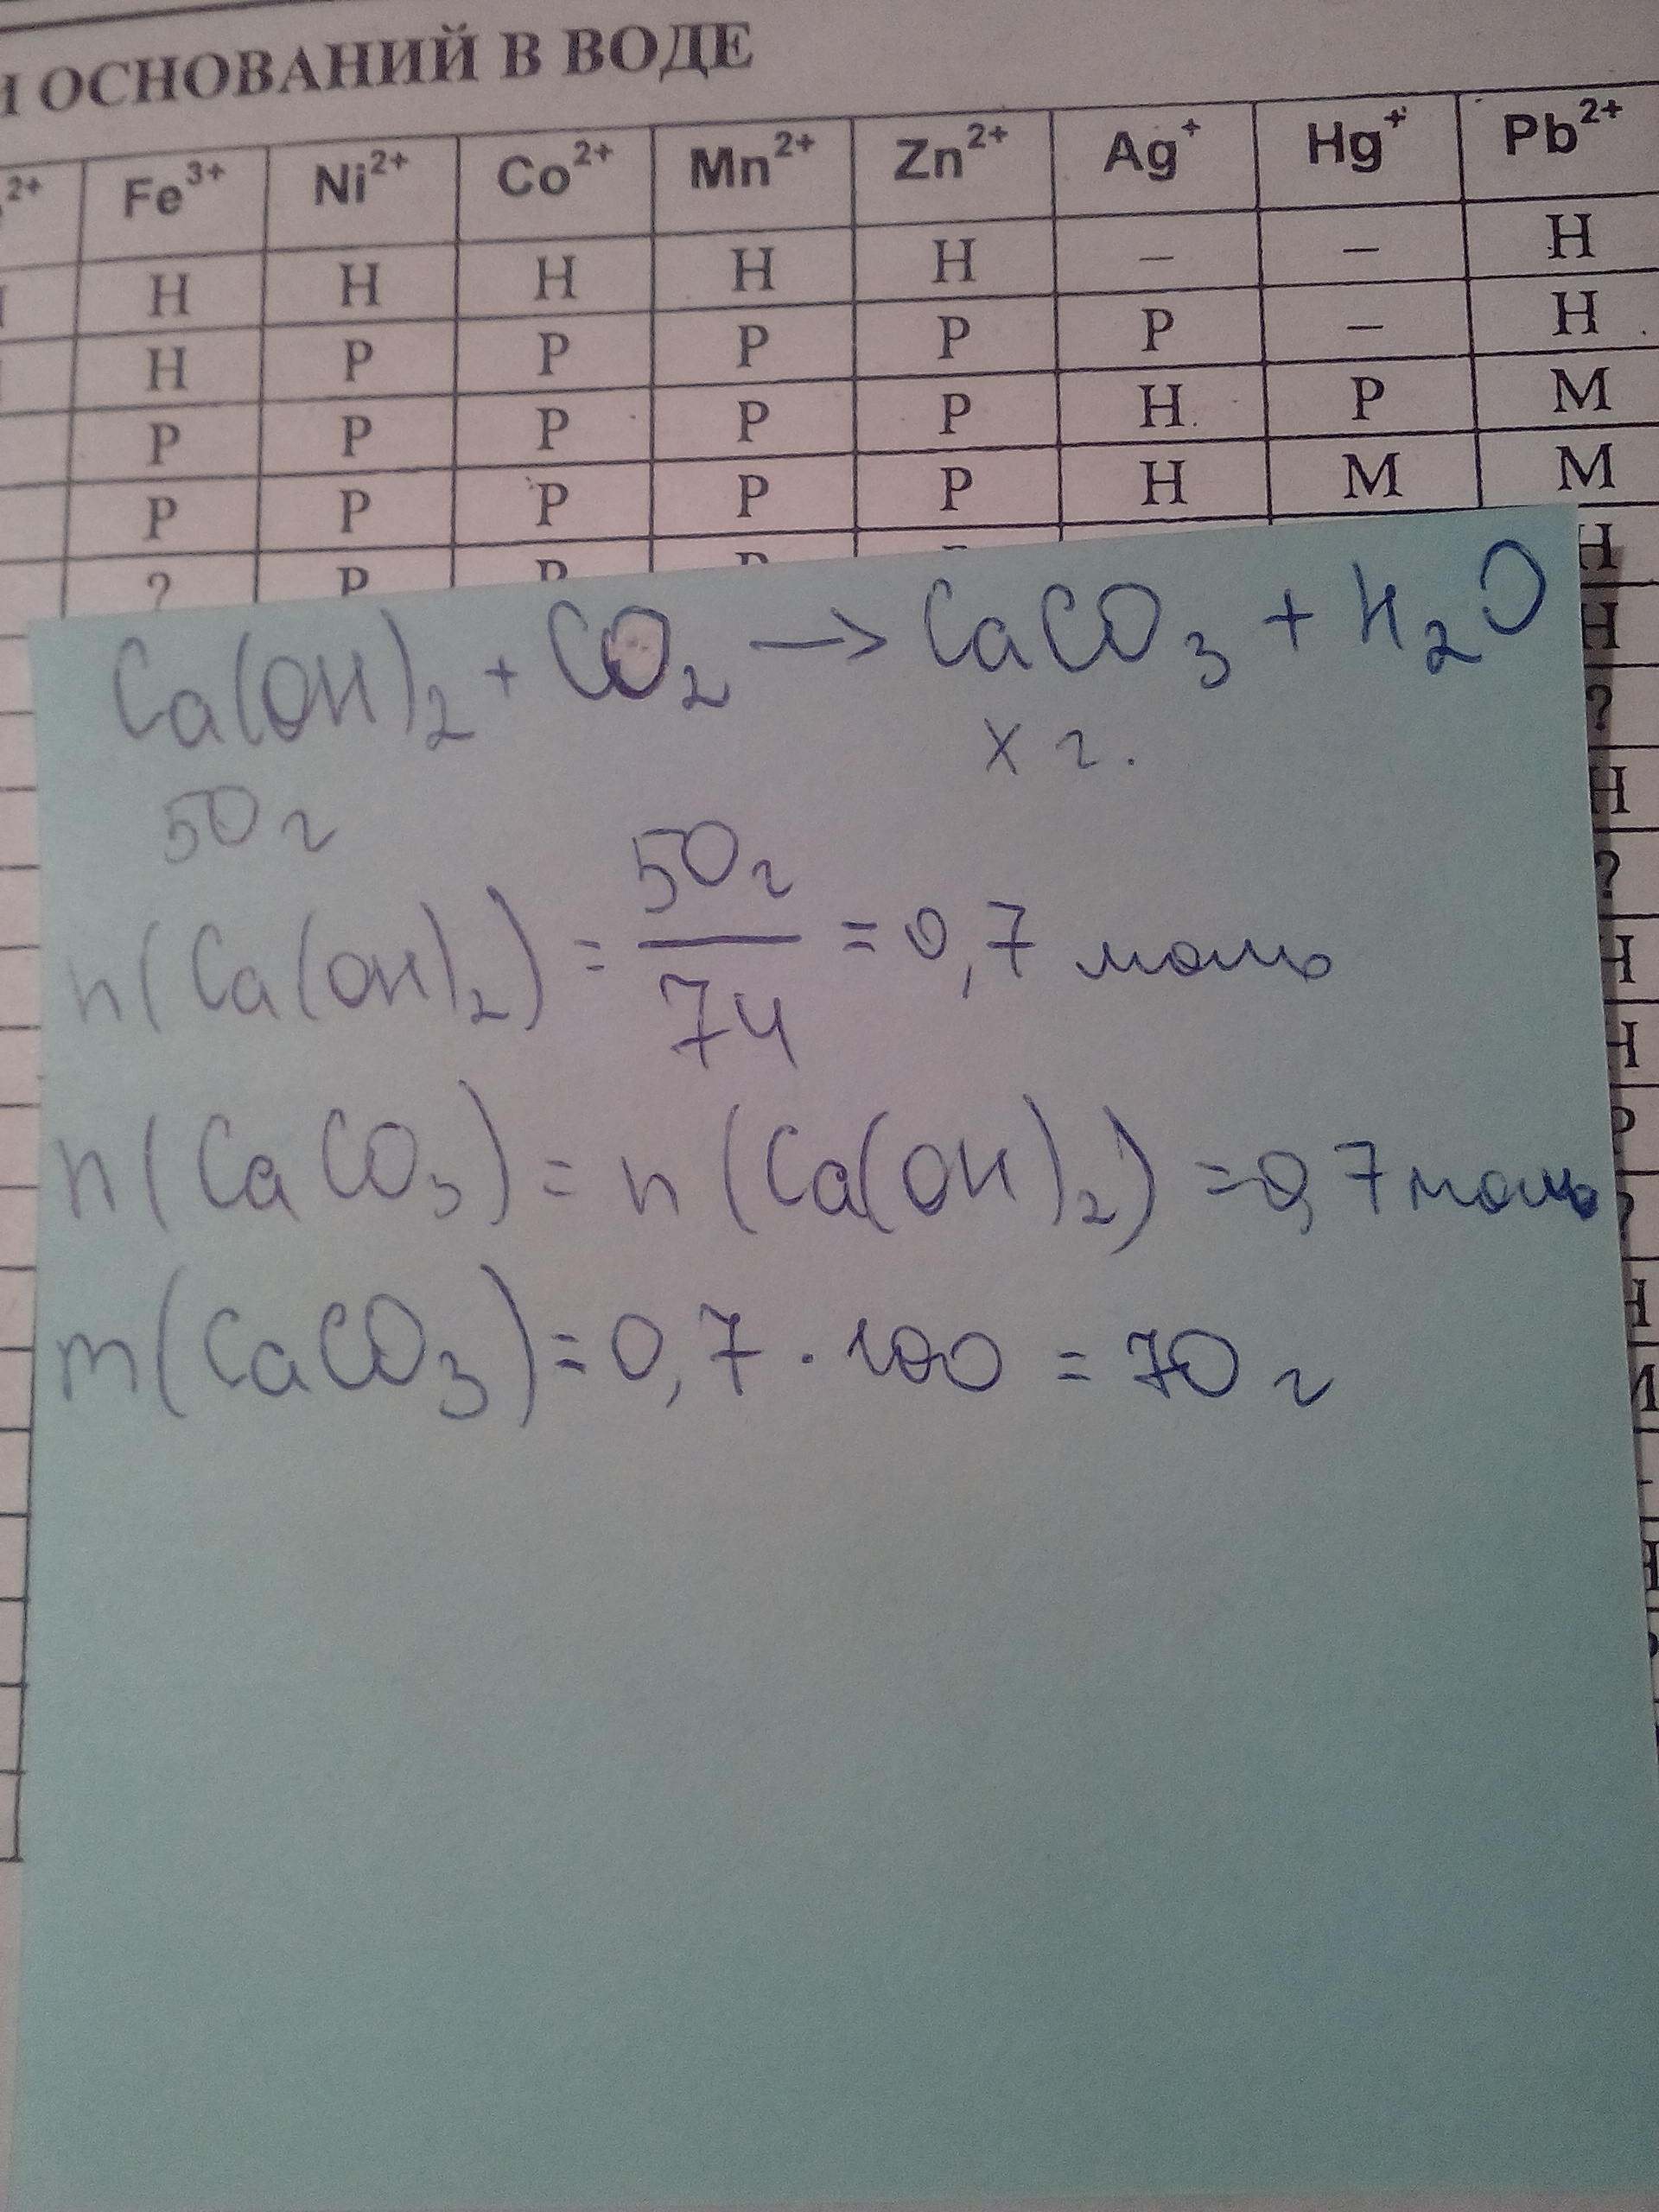 И ОСНОВАНИЙ В ВОДЕ
2+ Fe³⁺ Ni²⁺ Co²⁺ Mn²⁺ Zn²⁺ Ag⁺ Hg⁺ Pb²⁺
Н Н Н Н Н – – Н
Н Р Р Р Р Р – Н
Р Р Р Р Р Н Р М
Р Р Р Р Р Н М М
? Р Р Р Р Н
Ca(OH)₂ + CO₂ → CaCO₃ + H₂O
Н
50 г х г.
?
Н
?
n(Ca(OH)₂) = 50г/74 = 0,7 моль
Н
Н
n(CaCO₃) = n(Ca(OH)₂) = 0,7 моль
?
Н
m(CaCO₃) = 0,7 · 100 = 70 г